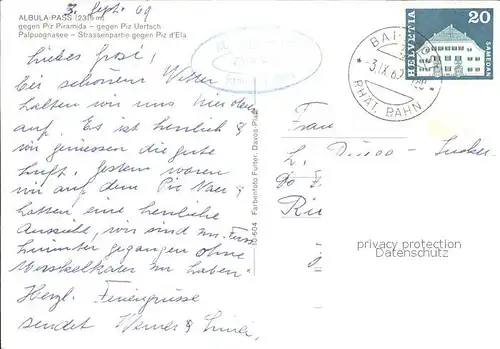 3. Sept. 69
ALBULA-PASS (2315 m)
gegen Piz Piramida – gegen Piz Uertsch
Palpuognasee – Strassenpartie gegen Piz d'Ela
Liebes Grosi!
Bei schönem Wetter
halten wir uns hier oben
auf. Es ist herrlich &
wir geniessen die gute
Luft. Gestern waren
wir auf dem Piz Nair &
hatten eine herrliche
Aussicht, wir sind zu Fuss
hinunter gegangen ohne
Muskelkater zu haben.
Herzl. Feriengrüsse
sendet Werner &
10-604 Farbenfoto Furter, Davos-Platz
BAHN
RHÄT. BAHN
HELVETIA 20
SAMEDAN
Frau
L.
privacy protection
Datenschutz